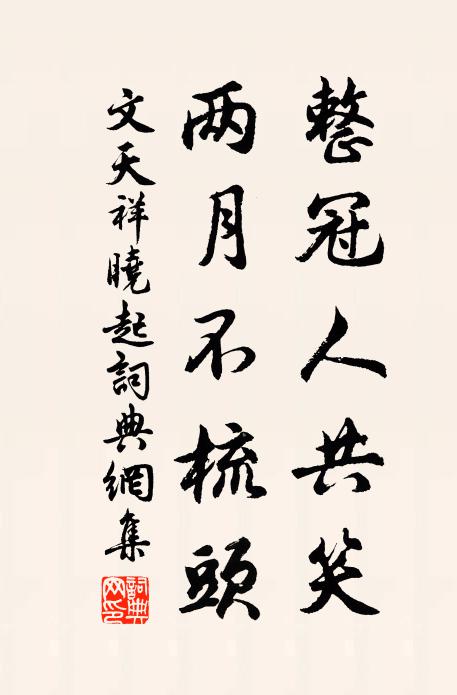 整冠人共笑
两月不梳頭
文天祥曉起詞典網集
詞典网印